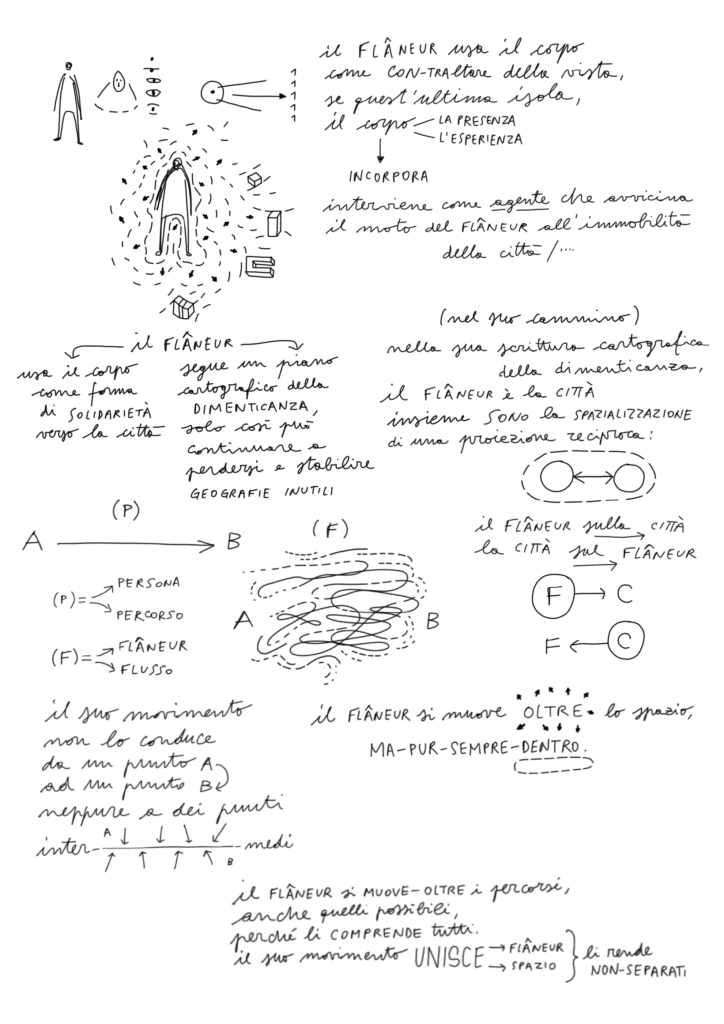 il FLÂNEUR usa il corpo
come CON-TRAltare della vista,
se quest'ultima isola,
il corpo
LA PRESENZA
L'ESPERIENZA
INCORPORA
interviene come agente che avvicina
il moto del FLÂNEUR all'immobilità
della città/....
1
1
1
1
1
il FLÂNEUR
usa il corpo
come forma
di SOLIDARIETÀ
verso la città
segue un piano
cartografico della
DIMENTICANZA,
solo così può
continuare a
perdersi e stabilire
GEOGRAFIE INUTILI
(nel suo cammino)
nella sua scrittura cartografica
della dimenticanza,
il FLÂNEUR è la CITTÀ
insieme SONO la SPAZIALIZZAZIONE
di una proiezione reciproca:
il FLÂNEUR sulla CITTÀ
la CITTÀ sul FLÂNEUR
F C
F C
(P)
A B
(P)=
PERSONA
PERCORSO
(F)=
FLÂNEUR
FLUSSO
(F)
A B
il suo movimento
non lo conduce
da un punto A
ad un punto B
neppure a dei punti
inter- A B -medi
il FLÂNEUR si muove OLTRE lo spazio,
MA-PUR-SEMPRE-DENTRO.
il FLÂNEUR si MUOVE-OLTRE i percorsi,
anche quelli possibili,
perché li COMPRENDE tutti.
il suo movimento UNISCE
FLÂNEUR
SPAZIO
li rende
NON-SEPARATI